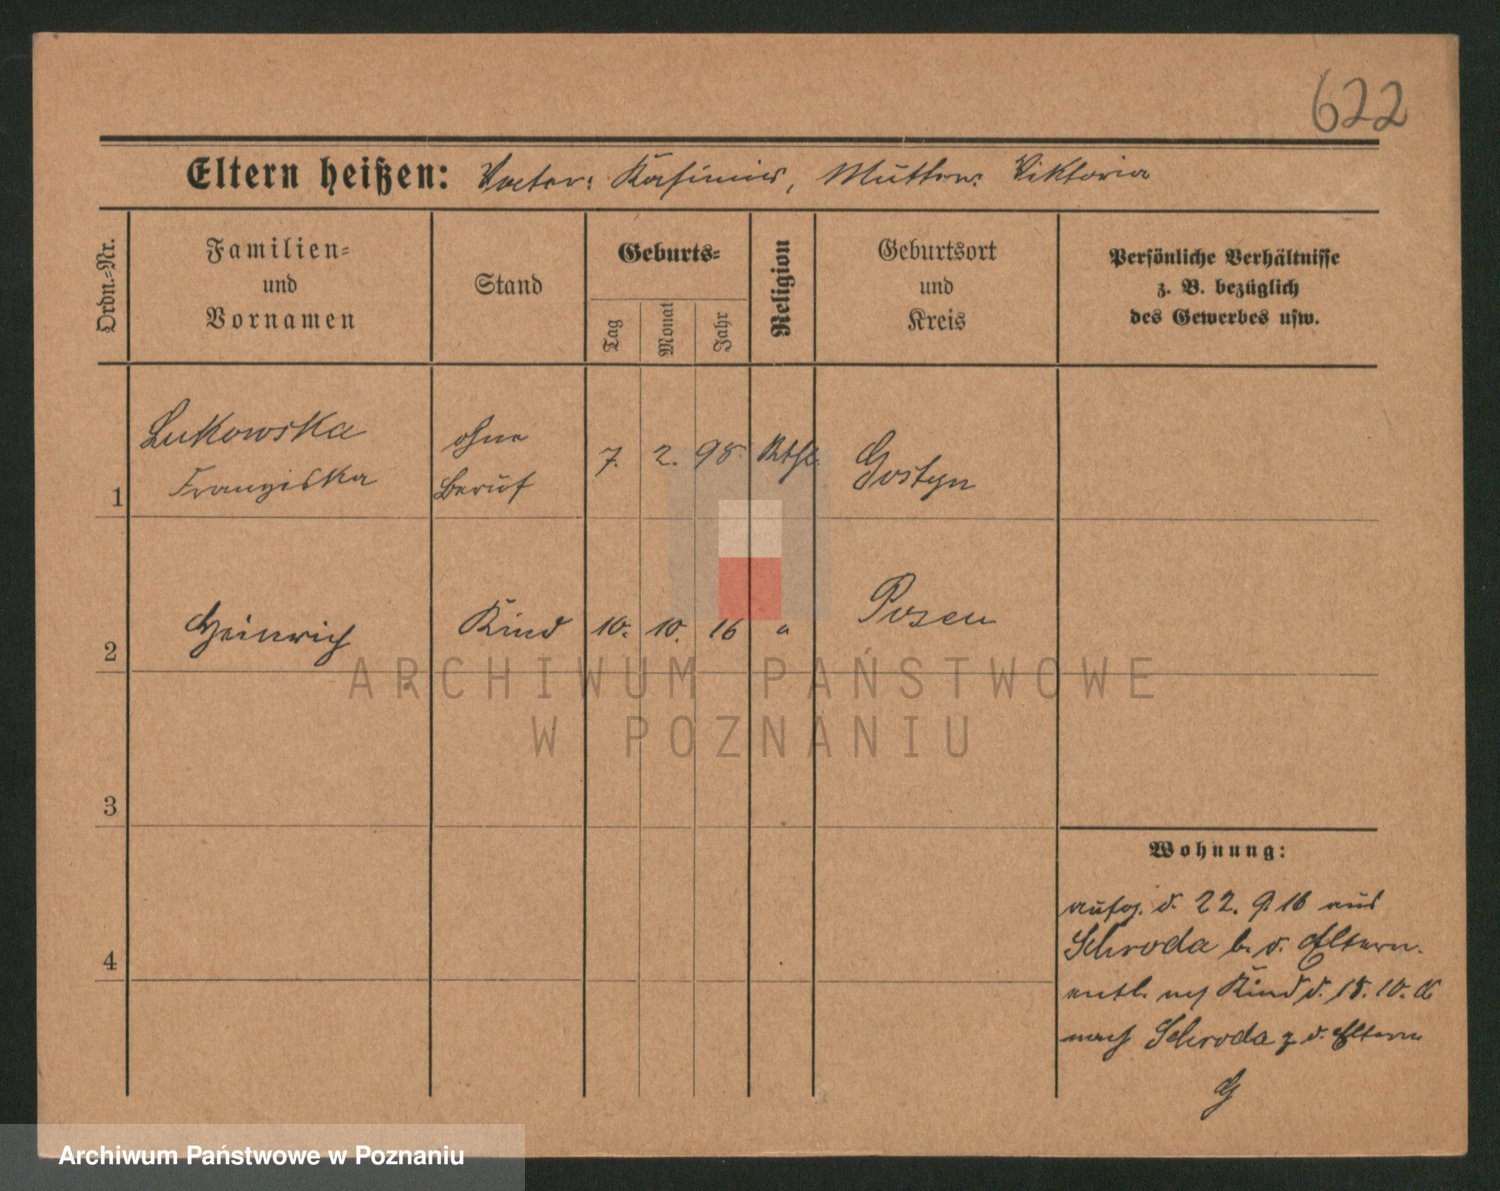 622
Eltern heißen: Vater: Kasimir, Mutter: Viktoria
Ordn.=Nr.
Familien=
und
Vornamen
Stand
Geburts=
Tag
Monat
Jahr
Religion
Geburtsort
und
Kreis
Persönliche Verhältnisse
z. B. bezüglich
des Gewerbes usw.
1
Lukowska
Franziska
ohne
Beruf
7.
2.
98.
Kthl.
Gostyn
2
Heinrich
Kind
10.
10.
16
"
Posen
3
4
Wohnung:
aufg. d. 22. 9. 16 aus
Schroda b. d. Eltern.
entl. Kind d. 18. 10. 16
nach Schroda z. d. Eltern
G
ARCHIWUM PAŃSTWOWE
W POZNANIU
Archiwum Państwowe w Poznaniu